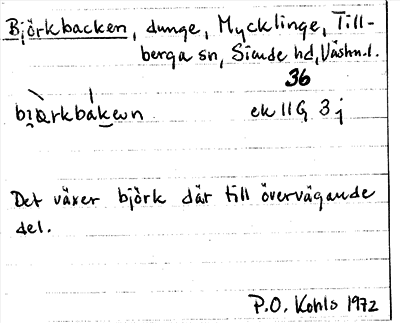 Björkbacken, dunge, Mycklinge, Till-
berga sn, Siende hd, Västm.l.
36
ek 11G 3j
Det växer björk där till övervägande
del.
P.O. Kohls 1972